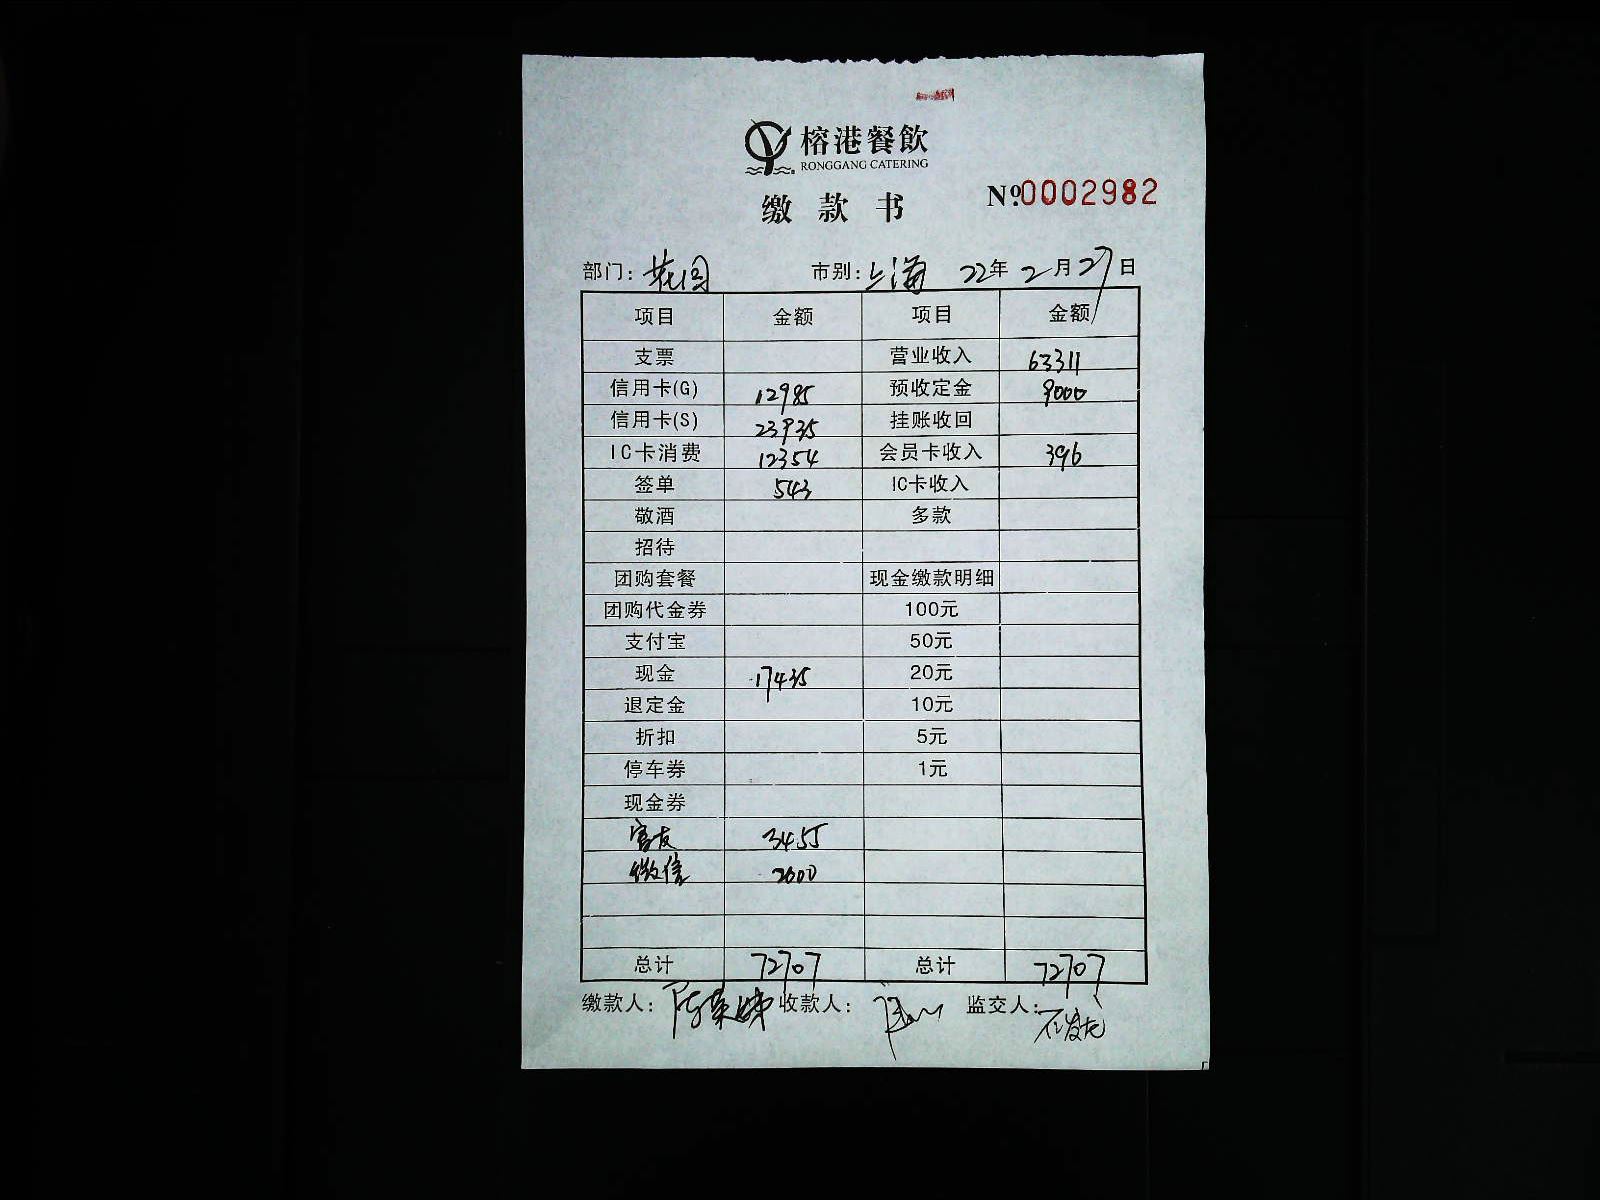 榕港餐飲
RONGGANG CATERING
缴款书
No.0002982
部门: 花园 市别: 上海 22年2月27日
项目 金额 项目 金额
支票 营业收入 63311
信用卡(G) 12985 预收定金 9000
信用卡(S) 23935 挂账收回
IC卡消费 12354 会员卡收入 396
签单 543 IC卡收入
敬酒 多款
招待
团购套餐 现金缴款明细
团购代金券 100元
支付宝 50元
现金 17435 20元
退定金 10元
折扣 5元
停车券 1元
现金券
3455
微信 2000
总计 72707 总计 72707
缴款人: 收款人: 监交人: